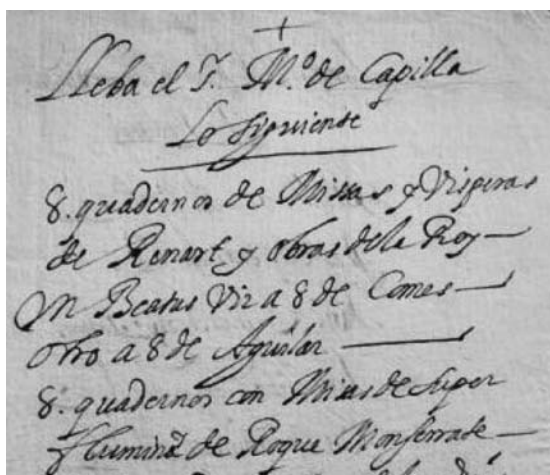 Lleba el S. M.º de Capilla
Lo siguiente
8. quadernos de Missas y Visperas
de Renart y obras dela Roy
Un Beatus Vir a 8 de Comes
otro a 8 de Aguilar
8. quadernos con Missas de super
flumina de Roque Monserrate